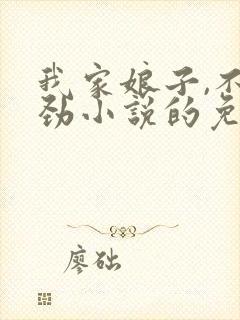 我家娘子,不
劲小说的免
廖础